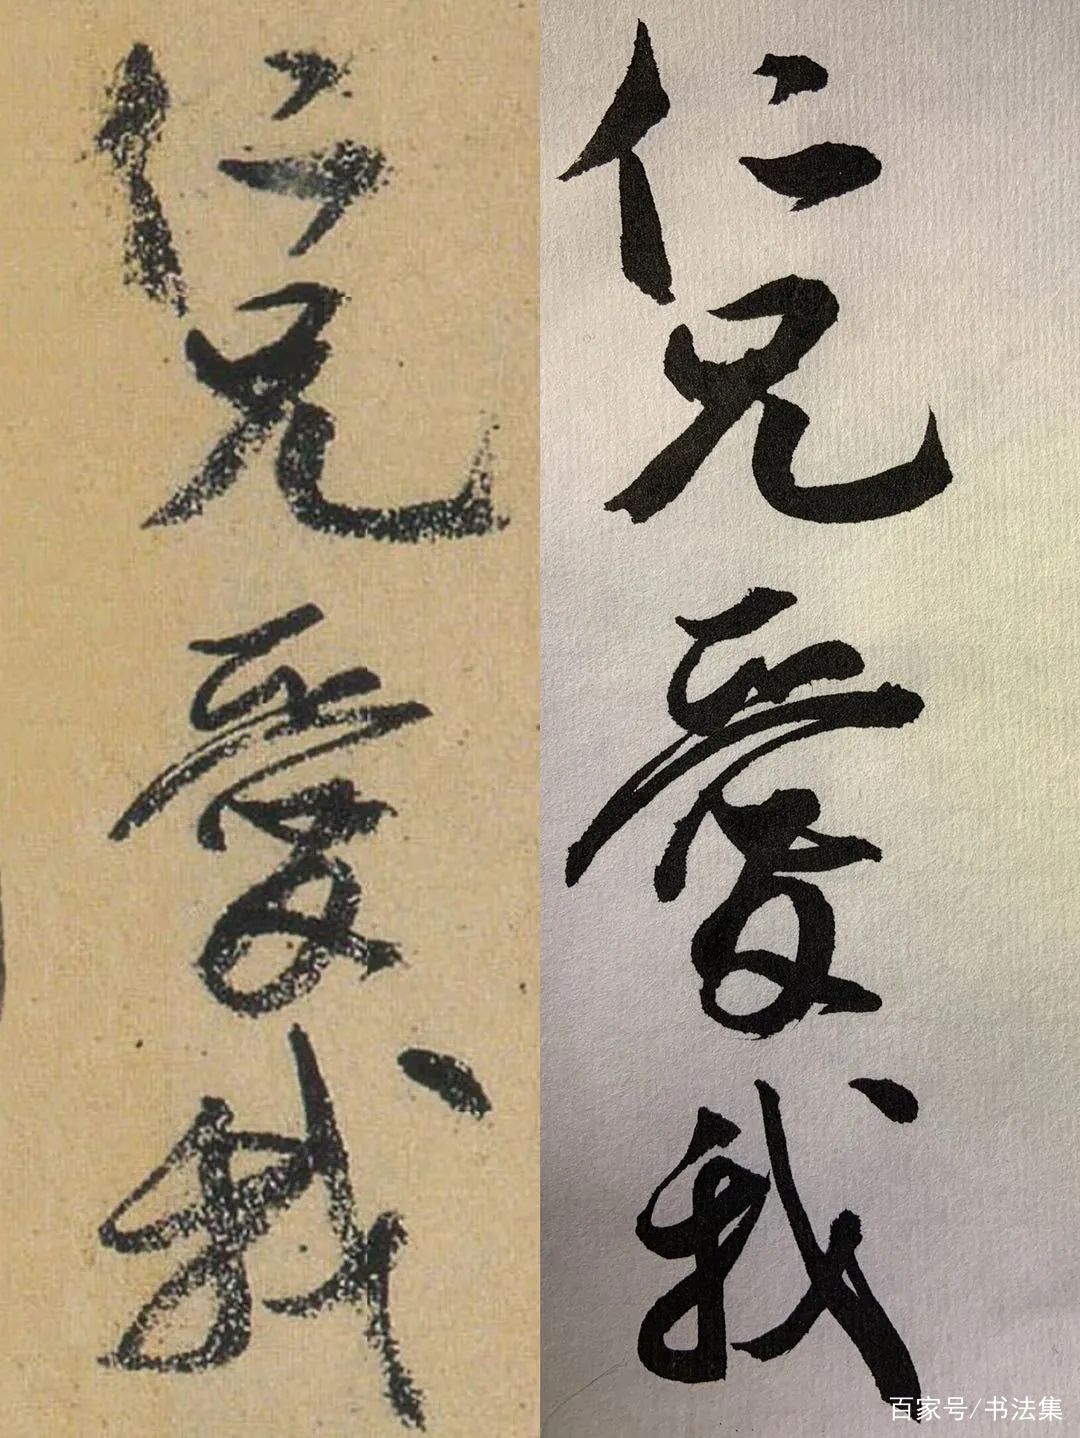 仁兄愛我
仁兄愛我
百家号/书法集